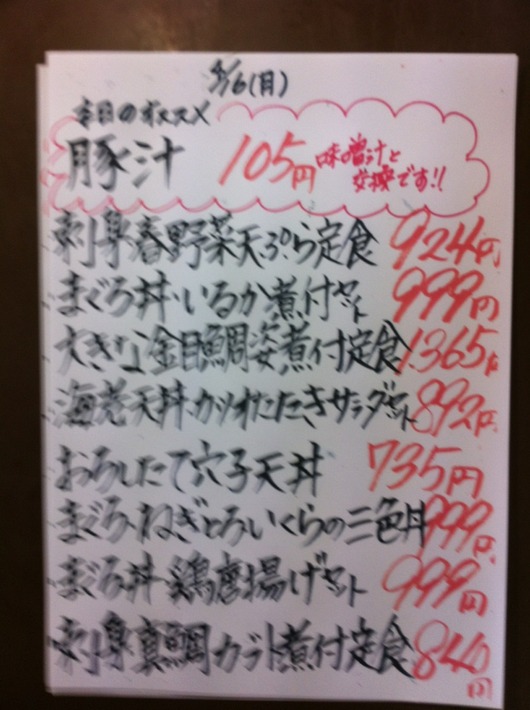 4/6(月)
本日のオススメ
豚汁 105円 味噌汁と
交換です!!
刺身・春野菜天ぷら定食 924円
まぐろ丼・いるか煮付セット 999円
大きな金目鯛姿煮付定食 1.365円
海老天丼・カツオたたきサラダセット 892円
おろしたて穴子天丼 735円
まぐろ・ねぎとろ・いくらの三色丼 999円
まぐろ丼・鶏唐揚げセット 999円
刺身・真鯛カブト煮付定食 840円